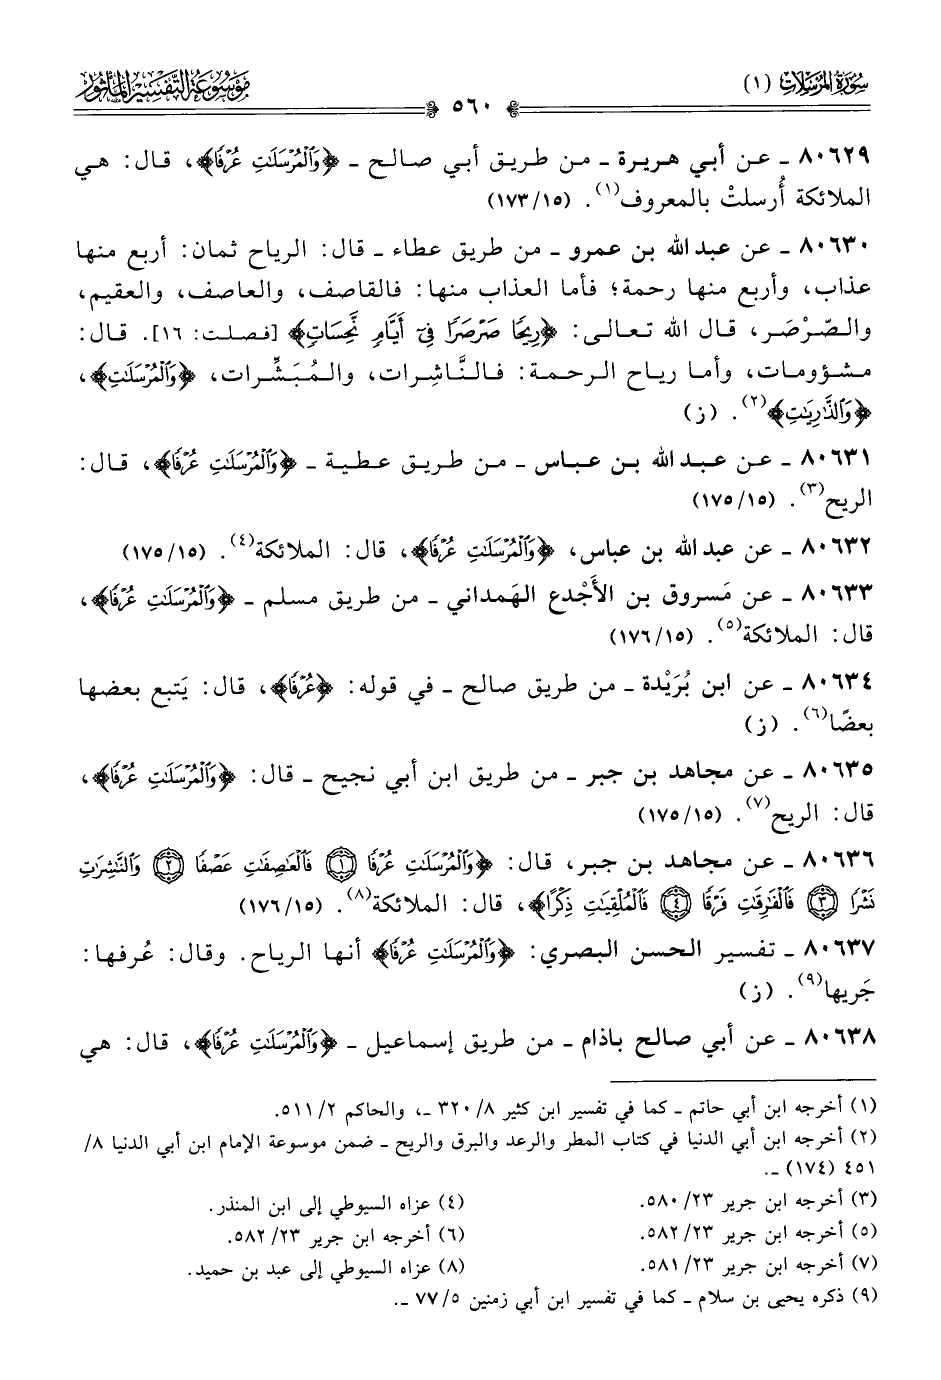 سُورَةُ المُرْسَلَاتِ (١)
٥٦٠
مَوْسُوعَةُ التَّفْسِيرِ المَأْثُورِ
٨٠٦٢٩ ـ عن أبي هريرة ـ من طريق أبي صالح ـ ﴿وَٱلْمُرْسَلَٰتِ عُرْفًا﴾، قال: هي
الملائكة أُرسلتْ بالمعروف(١). (١٧٣/١٥)
٨٠٦٣٠ ـ عن عبد الله بن عمرو ـ من طريق عطاء ـ قال: الرياح ثمان: أربع منها
عذاب، وأربع منها رحمة؛ فأما العذاب منها: فالقاصف، والعاصف، والعقيم،
والصّرْصَر، قال الله تعالى: ﴿رِيحًا صَرْصَرًا فِىٓ أَيَّامٍ نَّحِسَاتٍ﴾ [فصلت: ١٦]. قال:
مشؤومات، وأما رياح الرحمة: فالنَّاشِرات، والمُبَشِّرات، ﴿وَٱلْمُرْسَلَٰتِ﴾،
﴿وَٱلذَّٰرِيَٰتِ﴾(٢). (ز)
٨٠٦٣١ ـ عن عبد الله بن عباس ـ من طريق عطية ـ ﴿وَٱلْمُرْسَلَٰتِ عُرْفًا﴾، قال:
الريح(٣). (١٧٥/١٥)
٨٠٦٣٢ ـ عن عبد الله بن عباس، ﴿وَٱلْمُرْسَلَٰتِ عُرْفًا﴾، قال: الملائكة(٤). (١٧٥/١٥)
٨٠٦٣٣ ـ عن مَسروق بن الأَجْدع الهَمداني ـ من طريق مسلم ـ ﴿وَٱلْمُرْسَلَٰتِ عُرْفًا﴾،
قال: الملائكة(٥). (١٧٦/١٥)
٨٠٦٣٤ ـ عن ابن بُرَيْدة ـ من طريق صالح ـ في قوله: ﴿عُرْفًا﴾، قال: يَتبع بعضها
بعضًا(٦). (ز)
٨٠٦٣٥ ـ عن مجاهد بن جبر ـ من طريق ابن أبي نجيح ـ قال: ﴿وَٱلْمُرْسَلَٰتِ عُرْفًا﴾،
قال: الريح(٧). (١٧٥/١٥)
٨٠٦٣٦ ـ عن مجاهد بن جبر، قال: ﴿وَٱلْمُرْسَلَٰتِ عُرْفًا ١ فَٱلْعَٰصِفَٰتِ عَصْفًا ٢ وَٱلنَّٰشِرَٰتِ
نَشْرًا ٣ فَٱلْفَٰرِقَٰتِ فَرْقًا ٤ فَٱلْمُلْقِيَٰتِ ذِكْرًا﴾، قال: الملائكة(٨). (١٧٦/١٥)
٨٠٦٣٧ ـ تفسير الحسن البصري: ﴿وَٱلْمُرْسَلَٰتِ عُرْفًا﴾ أنها الرياح. وقال: عُرفها:
جَريها(٩). (ز)
٨٠٦٣٨ ـ عن أبي صالح باذام ـ من طريق إسماعيل ـ ﴿وَٱلْمُرْسَلَٰتِ عُرْفًا﴾، قال: هي
(١) أخرجه ابن أبي حاتم ـ كما في تفسير ابن كثير ٨/ ٣٢٠ ـ، والحاكم ٢/ ٥١١.
(٢) أخرجه ابن أبي الدنيا في كتاب المطر والرعد والبرق والريح ـ ضمن موسوعة الإمام ابن أبي الدنيا ٨/
٤٥١ (١٧٤) ـ.
(٣) أخرجه ابن جرير ٢٣/ ٥٨٠.
(٤) عزاه السيوطي إلى ابن المنذر.
(٥) أخرجه ابن جرير ٢٣/ ٥٨٢.
(٦) أخرجه ابن جرير ٢٣/ ٥٨٢.
(٧) أخرجه ابن جرير ٢٣/ ٥٨١.
(٨) عزاه السيوطي إلى عبد بن حميد.
(٩) ذكره يحيى بن سلام ـ كما في تفسير ابن أبي زمنين ٥/ ٧٧ ـ.